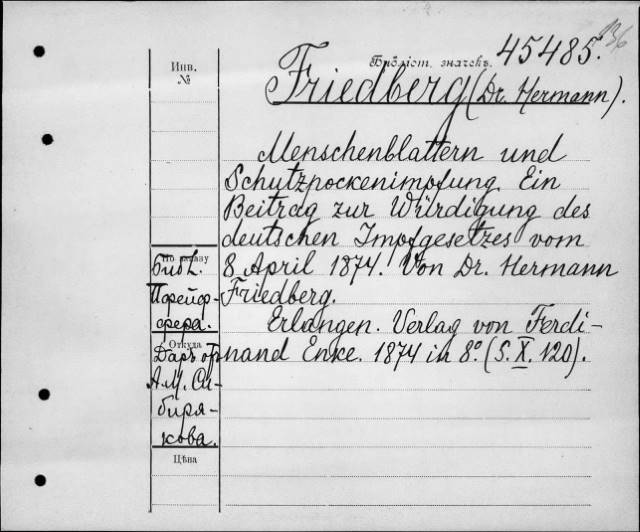 136
Библіот. значекъ. 45485.
Инв.
№
Friedberg (Dr. Hermann).
Menschenblattern und
Schutzpockenimpfung. Ein
Beitrag zur Würdigung des
deutschen Impfgesetzes vom
8 April 1874. Von Dr. Hermann
Friedberg.
Erlangen. Verlag von Ferdi-
nand Enke. 1874 in 8.° (S. X. 120).
По заказу
Библ.
Пфейф-
фера.
Откуда
Даръ от
А. М. Си-
биря-
кова.
Цѣна